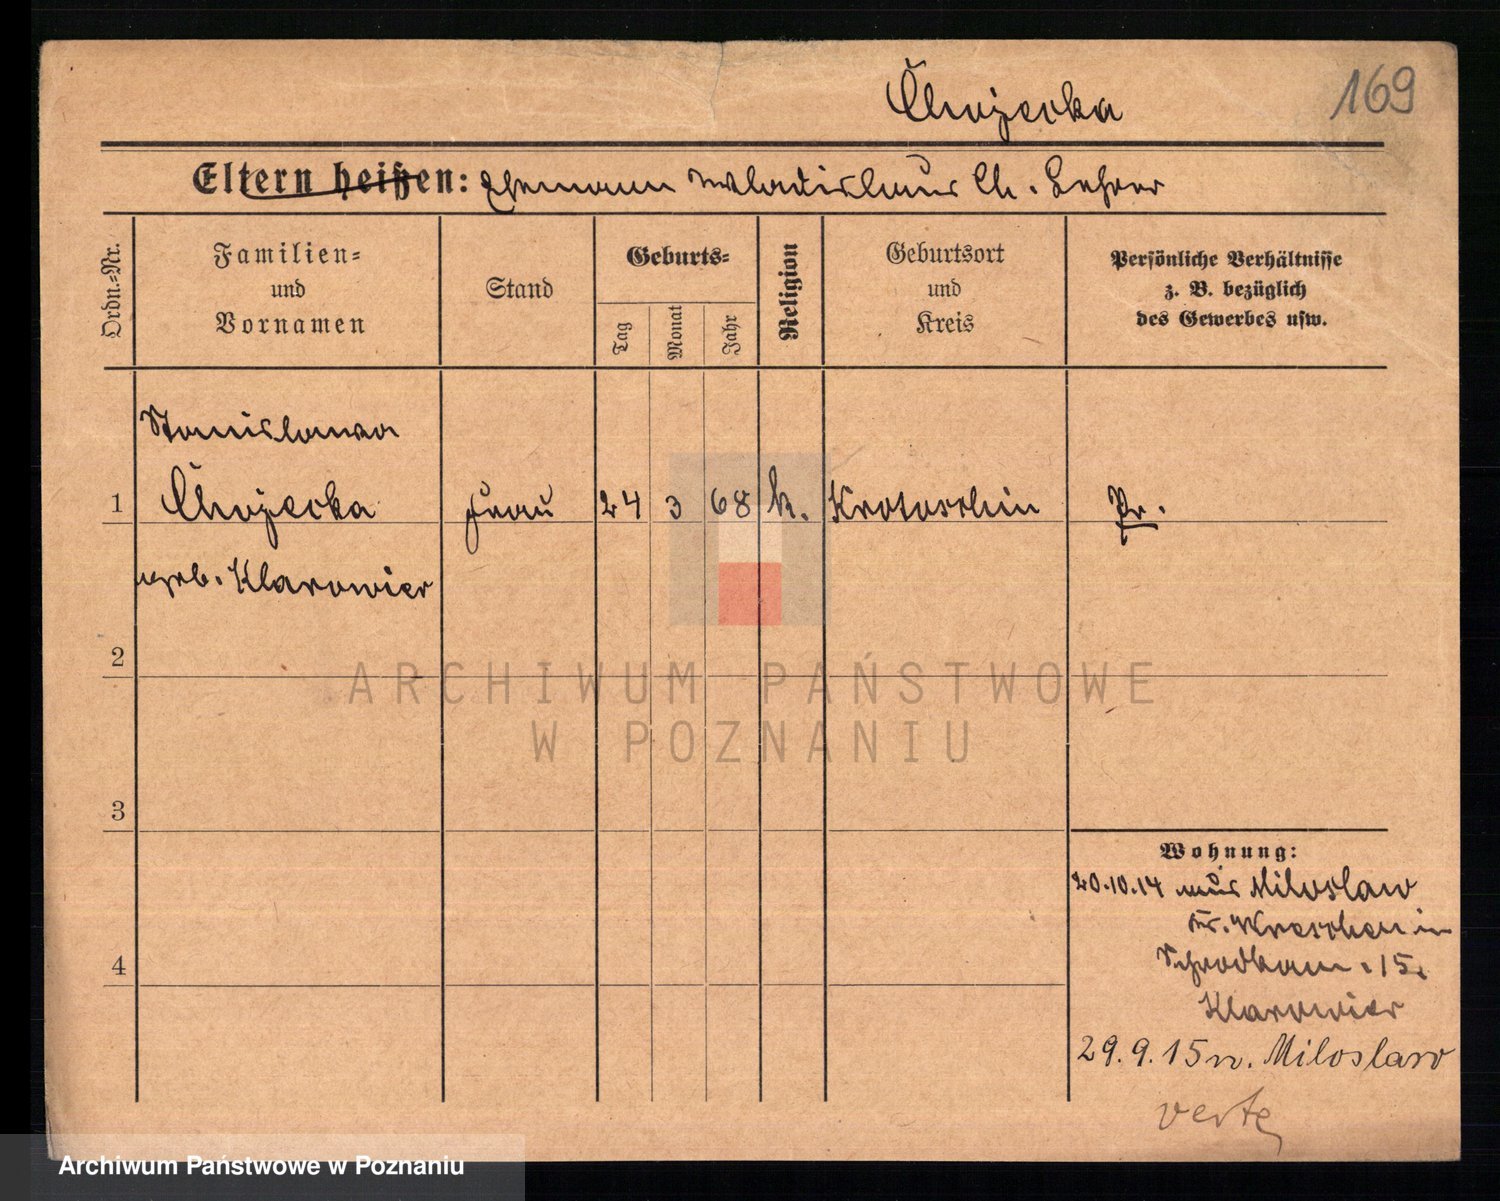 Chojecka
169
Eltern heißen: Ehemann Wladislaus Ch. Lehrer
Ordn.-Nr.
Familien-
und
Vornamen
Stand
Geburts-
Tag
Monat
Jahr
Religion
Geburtsort
und
Kreis
Persönliche Verhältnisse
z. B. bezüglich
des Gewerbes usw.
Stanislawa
1 Chojecka Frau 24 3 68 k. Krotoschin Pr.
geb.
2
3
4
Wohnung:
20.10.14 aus Miloslaw
Kr. Wreschen in
15.
29.9.15 n. Miloslaw
verte
ARCHIWUM PAŃSTWOWE
W POZNANIU
Archiwum Państwowe w Poznaniu